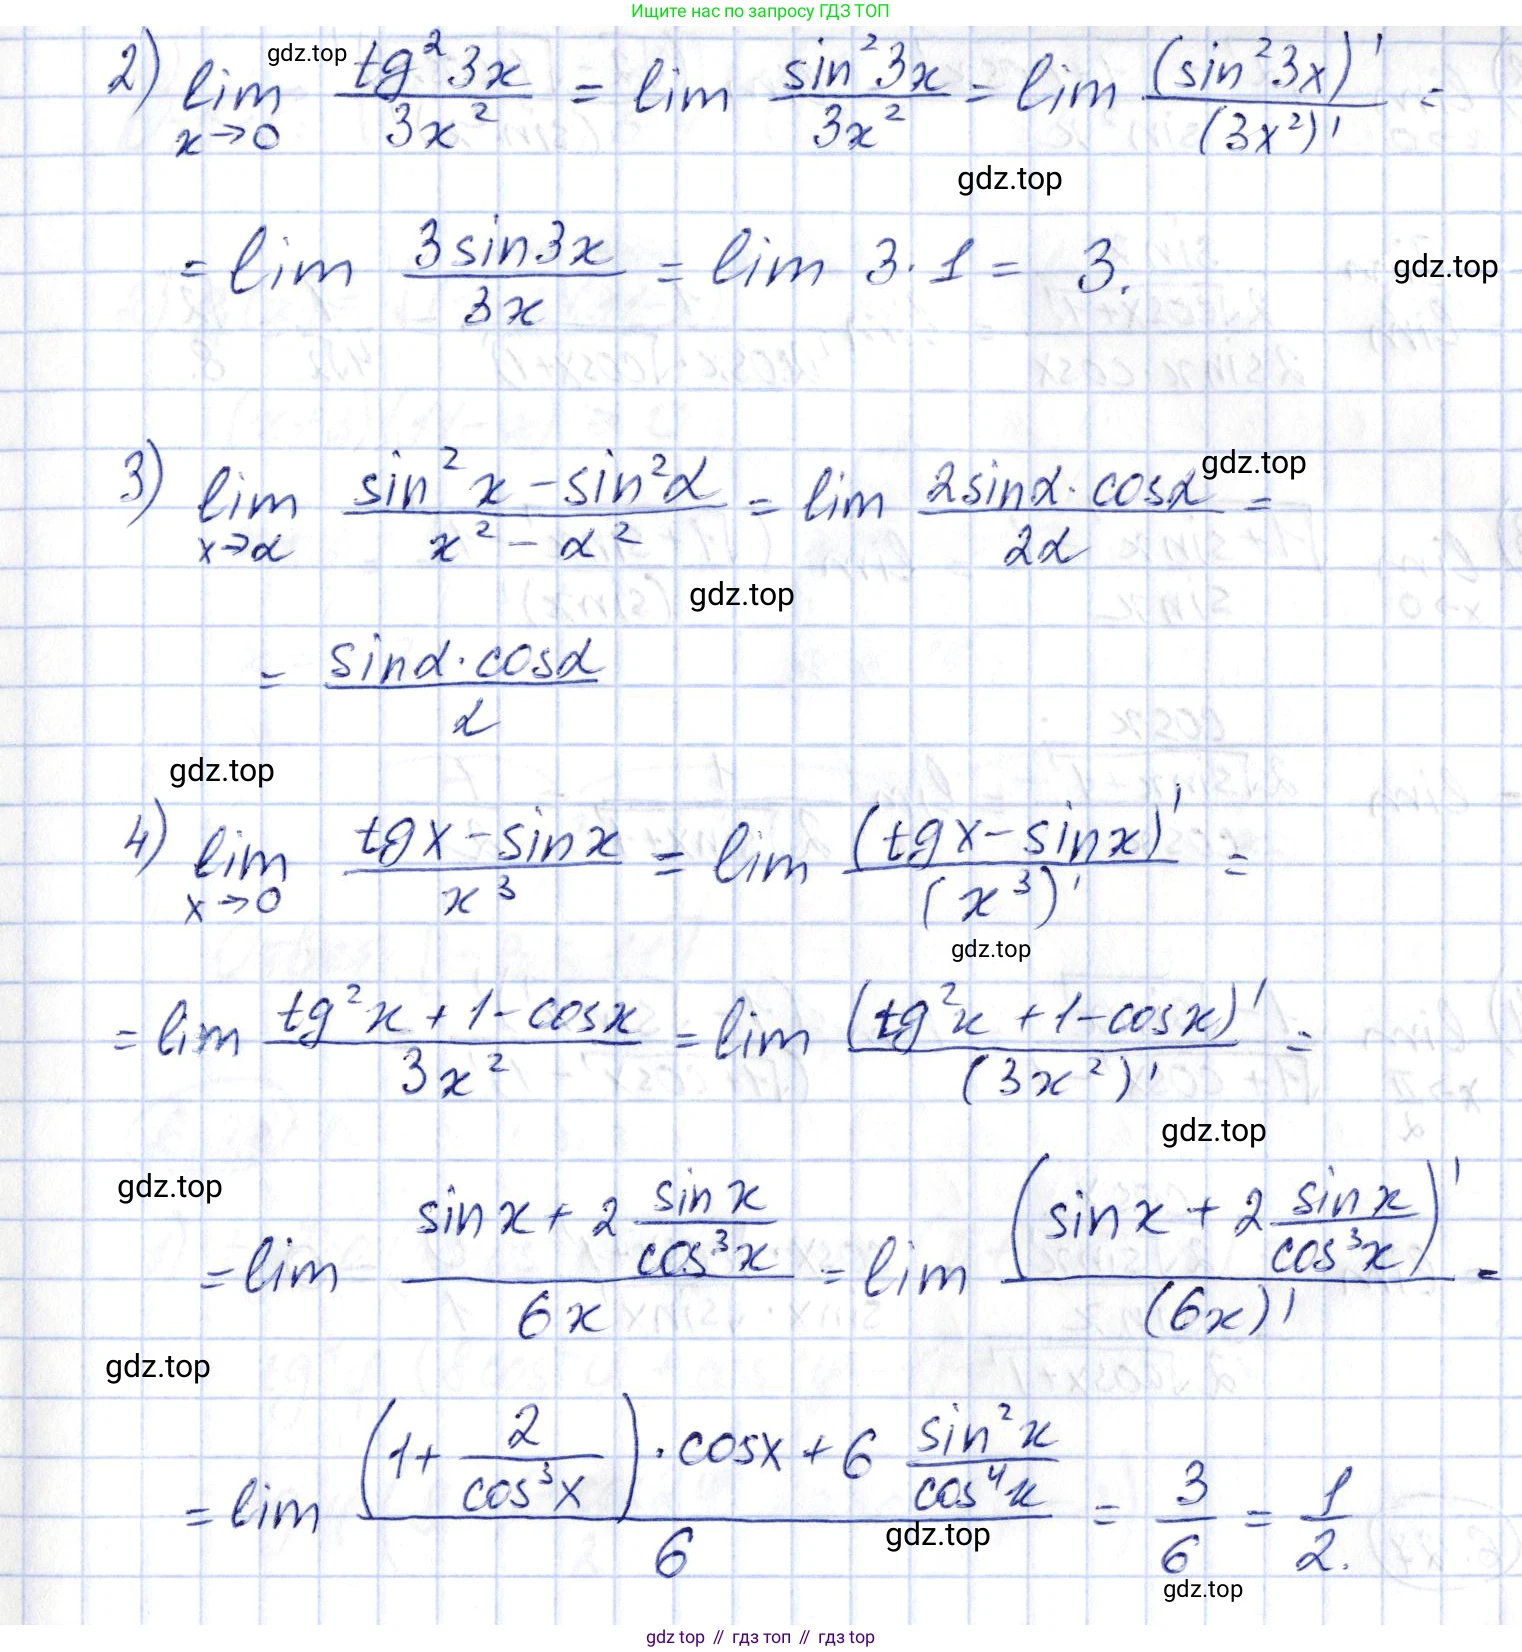 Ищите нас по запросу ГДЗ ТОП
2) lim x→0 tg²3x / 3x² = lim sin²3x / 3x² = lim (sin²3x)' / (3x²)' =
gdz.top
gdz.top
= lim 3sin3x / 3x = lim 3·1 = 3.
gdz.top
3) lim x→α sin²x − sin²α / x² − α² = lim 2sinα·cosα / 2α =
gdz.top
gdz.top
= sinα·cosα / α
gdz.top
4) lim x→0 tgx − sinx / x³ = lim (tgx − sinx)' / (x³)' =
gdz.top
= lim tg²x + 1 − cosx / 3x² = lim (tg²x + 1 − cosx)' / (3x²)' =
gdz.top
gdz.top
= lim sinx + 2 sinx / cos³x / 6x = lim (sinx + 2 sinx / cos³x)' / (6x)' =
gdz.top
= lim (1 + 2 / cos³x)·cosx + 6 sin²x / cos⁴x / 6 = 3 / 6 = 1 / 2.
gdz.top
gdz.top
gdz top // гдз топ // гдз top